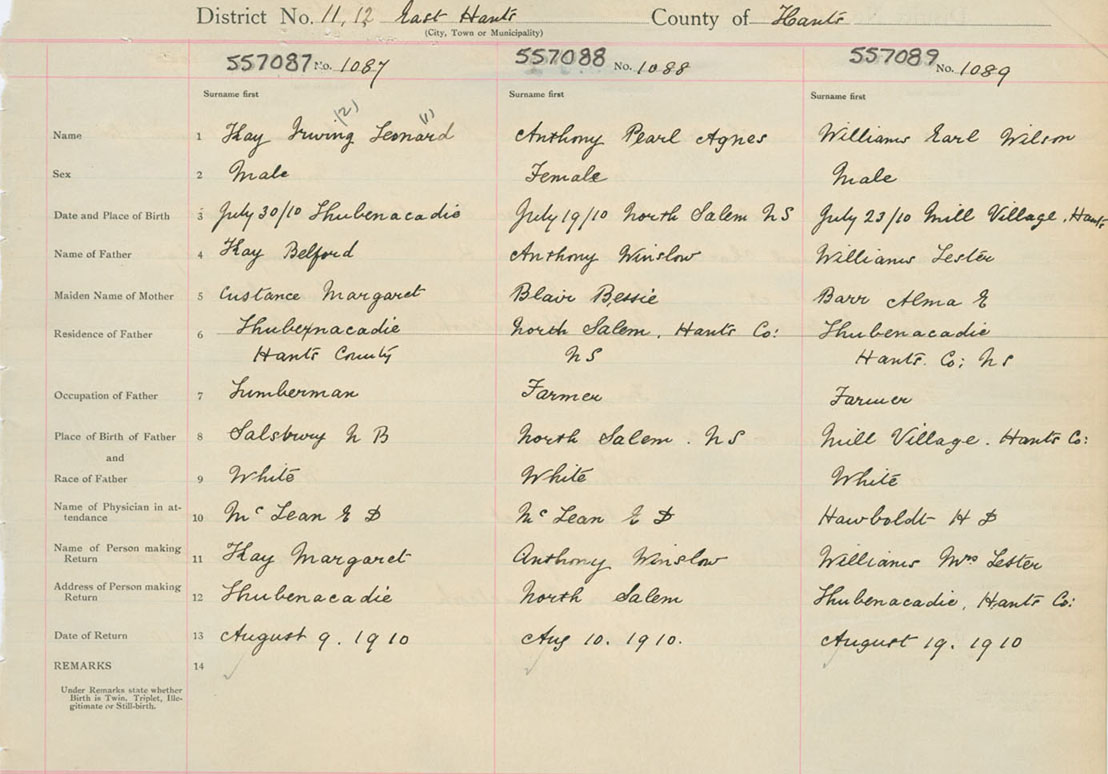 District No. 11, 12 East Hants County of Hants
(City, Town or Municipality)
557087 No. 1087 557088 No. 1088 557089 No. 1089
Surname first Surname first Surname first
(2) (1)
Name 1 Kay Irving Leonard Anthony Pearl Agnes Williams Earl Wilson
Sex 2 Male Female Male
Date and Place of Birth 3 July 30/10 Shubenacadie July 19/10 North Salem NS July 23/10 Mill Village, Hants
Name of Father 4 Kay Belford Anthony Winslow Williams Lester
Maiden Name of Mother 5 Custance Margaret Blair Bessie Barr Alma E
Residence of Father 6 Shubenacadie North Salem, Hants Co: Shubenacadie
Hants County NS Hants. Co; NS
Occupation of Father 7 Lumberman Farmer Farmer
Place of Birth of Father 8 Salsbury N B North Salem. NS Mill Village. Hants Co:
and
Race of Father 9 White White White
Name of Physician in at-
tendance 10 Mc Lean E D Mc Lean E D Hawboldt H D
Name of Person making
Return 11 Kay Margaret Anthony Winslow Williams Mrs Lester
Address of Person making
Return 12 Shubenacadie North Salem Shubenacadie, Hants Co:
Date of Return 13 August 9. 1910 Aug 10. 1910. August 19. 1910
REMARKS 14
Under Remarks state whether
Birth is Twin, Triplet, Ille-
gitimate or Still-birth.